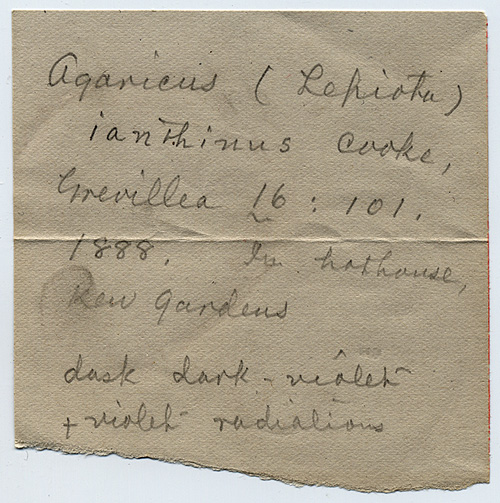 Agaricus (Lepiota)
ianthinus Cooke,
Grevillea 16 : 101.
1888. In hothouse,
Kew Gardens
dark - violet
+ violet radiations